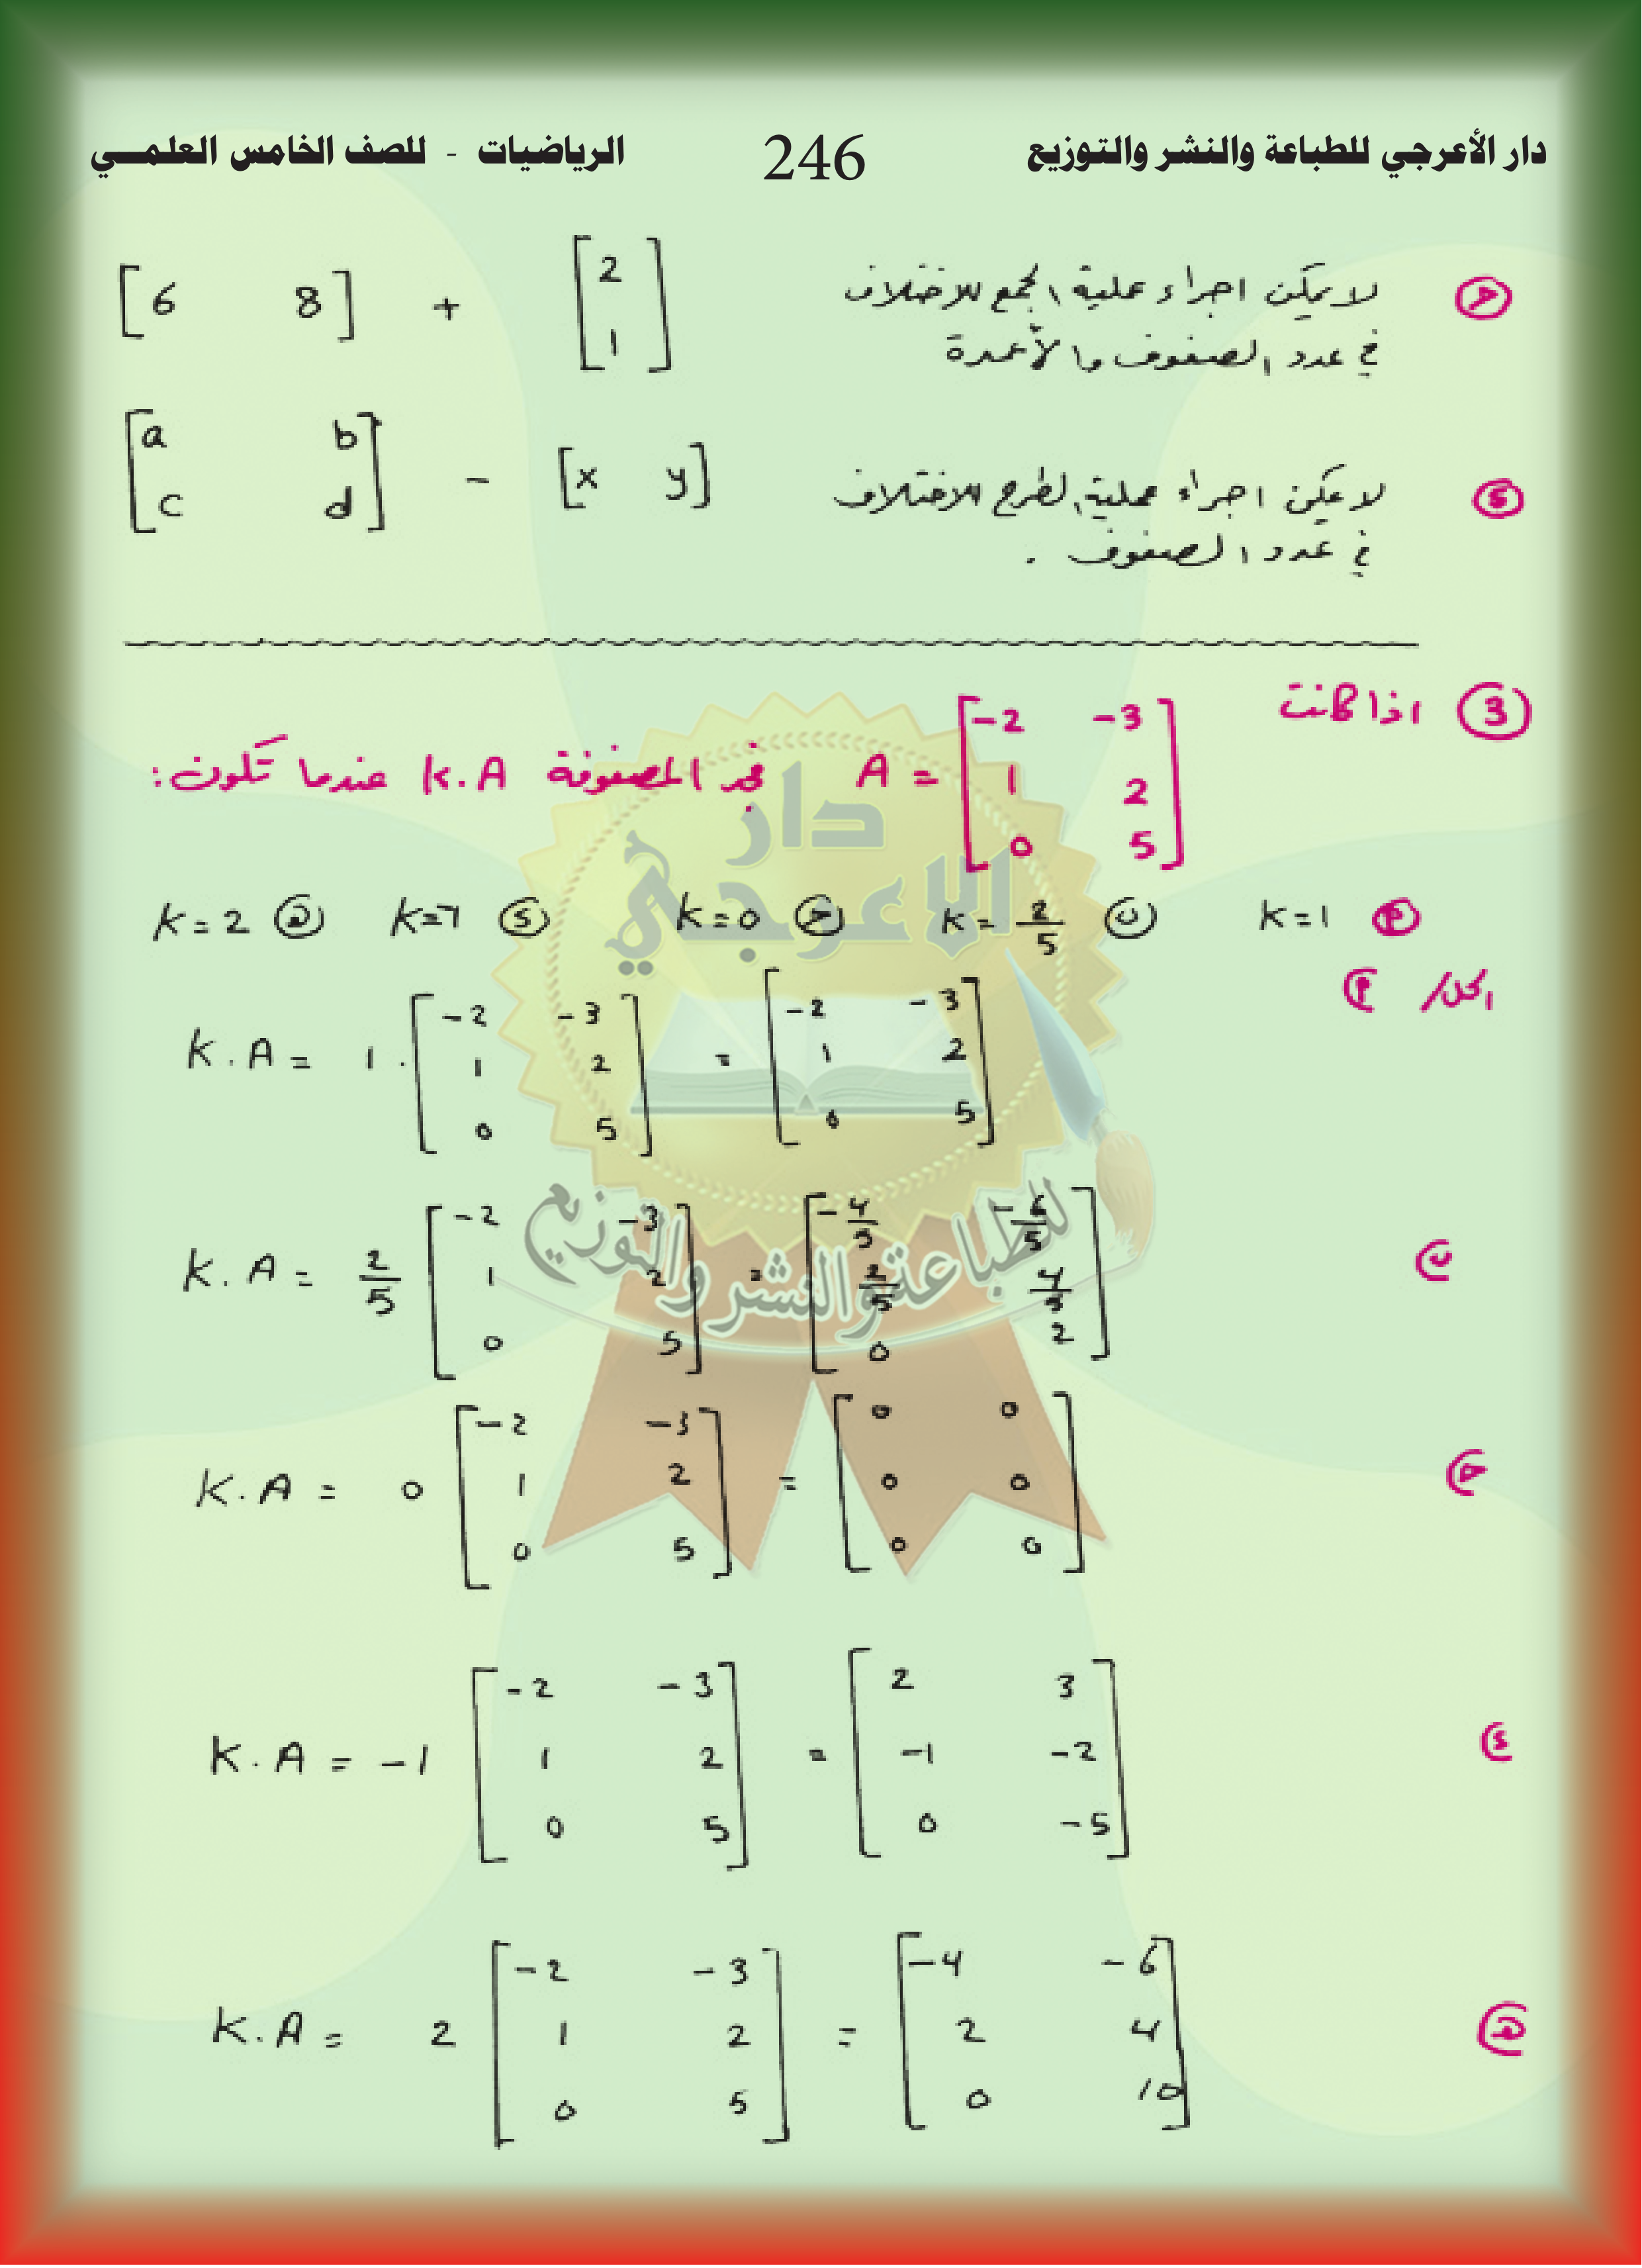 دار الأعرجي للطباعة والنشر والتوزيع 246 الرياضيات - للصف الخامس العلمي
ج لا يمكن اجراء عملية الجمع للاختلاف
في عدد الصفوف والأعمدة
[6 8] + [2
1]
د لا يمكن اجراء عملية الطرح للاختلاف
في عدد الصفوف .
[a b
c d] - [x y]
3 اذا كانت A = [-2 -3
1 2
0 5] فجد المصفوفة k.A عندما تكون:
أ k=1 ب k=2/5 ج k=0 د k=-1 هـ k=2
الحل/ أ
k.A = 1 . [-2 -3
1 2
0 5] = [-2 -3
1 2
0 5]
ب
k.A = 2/5 [-2 -3
1 2
0 5] = [-4/5 -6/5
2/5 4/5
0 2]
ج
k.A = 0 [-2 -3
1 2
0 5] = [0 0
0 0
0 0]
د
k.A = -1 [-2 -3
1 2
0 5] = [2 3
-1 -2
0 -5]
هـ
k.A = 2 [-2 -3
1 2
0 5] = [-4 -6
2 4
0 10]
دار
الاعرجي
للطباعة والنشر والتوزيع